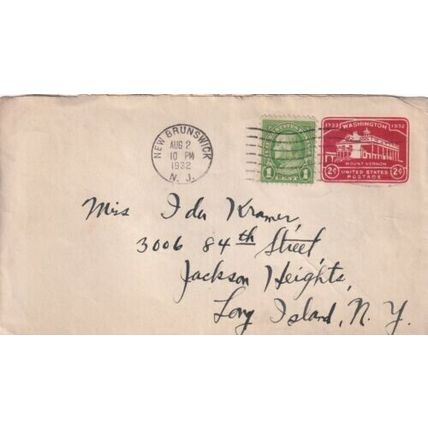 NEW BRUNSWICK
AUG 2
10 PM
1932
N. J.
1 CENT 1
1732 WASHINGTON 1932
MOUNT VERNON
2¢ UNITED STATES POSTAGE 2¢
Miss Ida Kramer,
3006 84th Street,
Jackson Heights,
Long Island, N. Y.